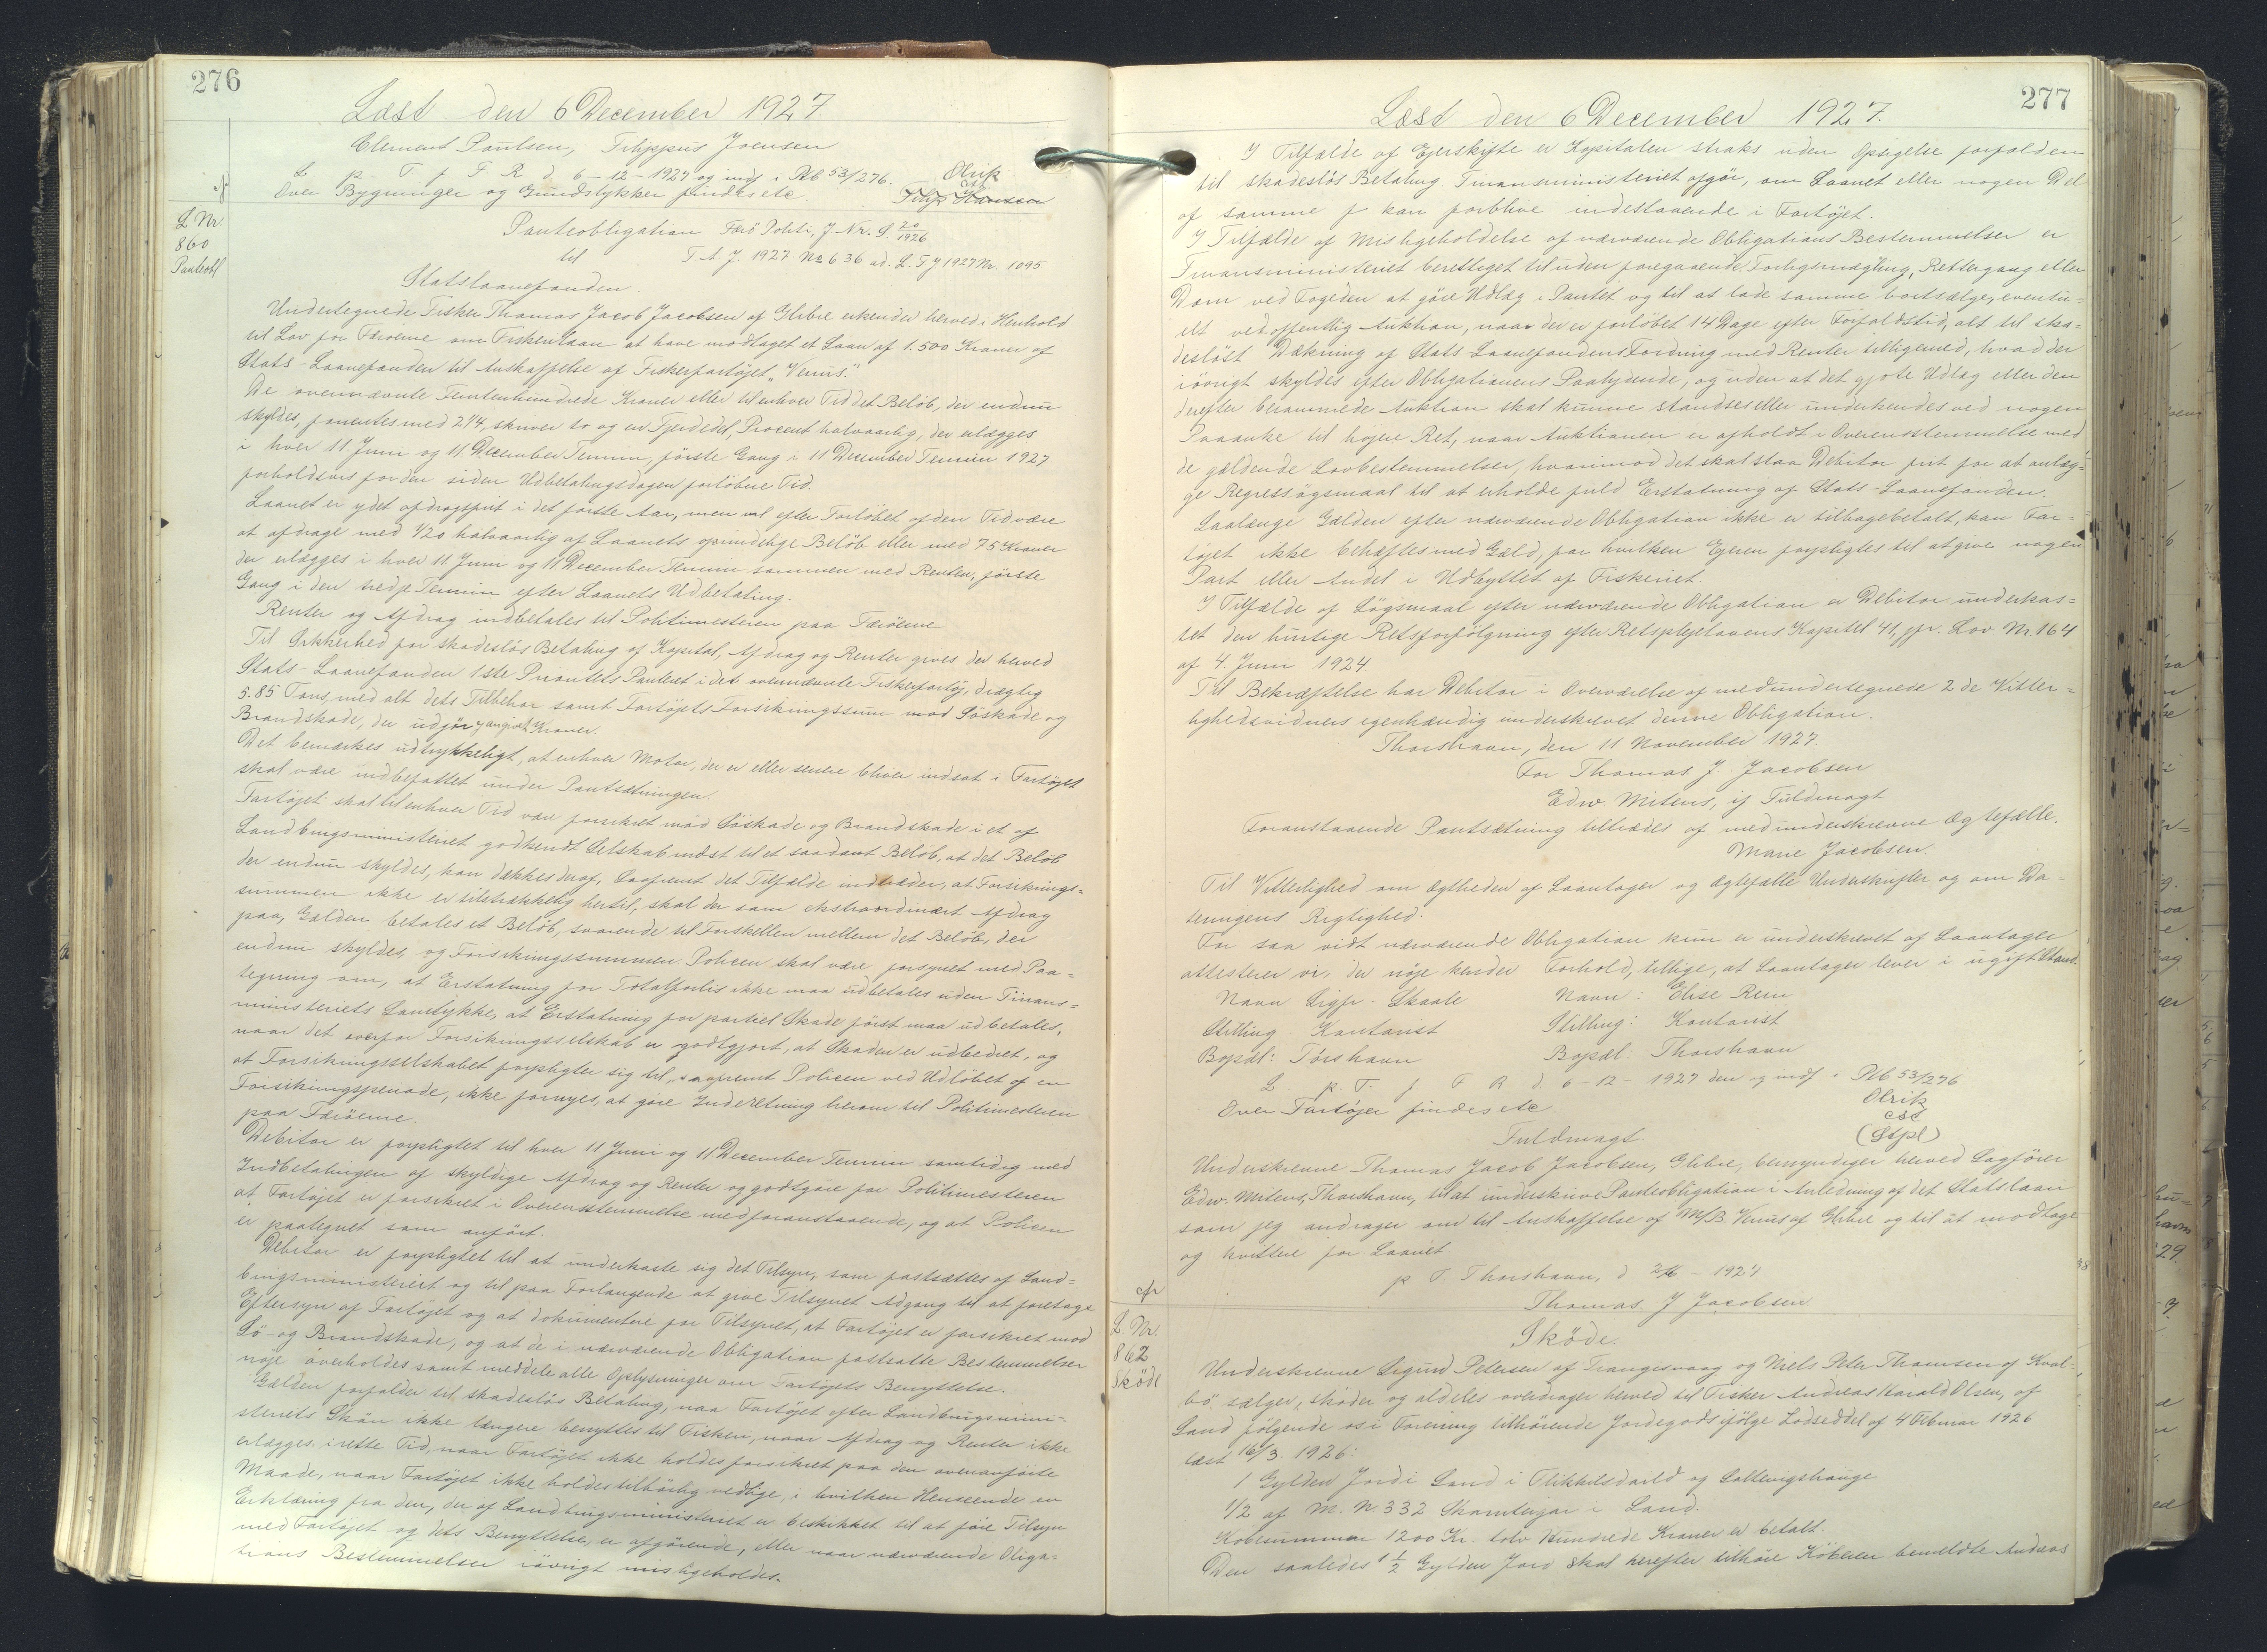 276
Læst den 6 December 1927.
Clement Poulsen, Filippus Joensen
L p. T. f F R d. 6-12-1927 og indf i Pb 53/276.
Over Bygninger og Grundstykker findes etc.
Olrik
cst
cf
L Nr.
860
Panteobl
Panteobligation Færö Politi, J. Nr. S. 20/1926
til T. A. J. 1927 Nr 636 ad. L. F J 1927 Nr. 1095
Statslaanefonden.
Undertegnede Fisker Thomas Jacob Jacobsen af Glibre erkender herved i Henhold
til Lov for Færöerne om Fiskerilaan at have modtaget et Laan af 1.500 Kroner af
Stats-Laanefonden til Anskaffelse af Fiskerfartöjet "Venus."
De ovennævnte Femtenhundrede Kroner eller til enhver Tid det Belöb, der endnu
skyldes, forrentes med 2 1/4, skriver to og en Fjerdedel, Procent halvaarlig, der erlægges
i hver 11 Juni og 11 December Termin, förste Gang i 11 December Termin 1927
forholdsvis for den siden Udbetalingsdagen forlöbne Tid.
Laanet er ydet afdragsfrit i det förste Aar, men vil efter Forlöbet af den Tid være
at afdrage med 1/20 halvaarlig af Laanets oprindelige Belöb eller med 75 Kroner
der erlægges i hver 11 Juni og 11 December Termin sammen med Renten, förste
Gang i den tredje Termin efter Laanets Udbetaling.
Renter og Afdrag indbetales til Politimesteren paa Færöerne
Til Sikkerhed for skadeslös Betaling af Kapital, Afdrag og Renter gives der herved
Stats-Laanefonden 1ste Prioritets Panteret i det ovennævnte Fiskerfartöj, drægtig
5.85 Tons, med alt dets Tilbehör samt Fartöjets Forsikringssum mod Söskade og
Brandskade, der udgör angivet Kroner.
Det bemærkes udtrykkeligt, at enhver Motor, der er eller senere bliver indsat i Fartöjet
skal være indbefattet under Pantsætningen.
Fartöjet skal til enhver Tid være forsikret mod Söskade og Brandskade i et af
Landbrugsministeriet godkendt Selskab mindst til et saadant Belöb, at det Belöb
der endnu skyldes, kan dækkes deraf, Saafremt det Tilfælde indtræder, at Forsikrings-
summen ikke er tilstrækkelig hertil, skal der som ekstraordinært Afdrag
paa Gælden betales et Belöb, svarende til Forskellen mellem det Belöb, der
endnu skyldes, og Forsikringssummen. Policen skal være forsynet med Paa=
tegning om, at Erstatning for Totalforlis ikke maa udbetales uden Finans=
ministeriets Samtykke, at Erstatning for partiel Skade först maa udbetales,
naar det overfor Forsikringsselskab er godtgjort, at Skaden er udbedret, og
at Forsikringsselskabet forpligter sig til, saafremt Policen ved Udlöbet af en
Forsikringsperiode, ikke fornyes, at göre Indberetning herom til Politimesteren
paa Færöerne.
Debitor er forpligtet til hver 11 Juni og 11 December Termin samtidig med
Indbetalingen af skyldige Afdrag og Renter og godtgöre for Politimesteren
at Fartöjet er forsikret i Overensstemmelse med foranstaaende, og at Policen
er paategnet som anfört.
Debitor er forpligtet til at underkaste sig det Tilsyn, som fastsættes af Land=
brugsministeriet og til paa Forlangende at give Tilsynet Adgang til at foretage
Eftersyn af Fartöjet og at dokumentere for Tilsynet, at Fartöjet er forsikret mod
Sö- og Brandskade, og at de i nærværende Obligation fastsatte Bestemmelser
nöje overholdes samt meddele alle Oplysninger om Fartöjets Benyttelse.
Gælden forfalder til skadeslös Betaling, naar Fartöjet efter Landbrugsmini-
steriets Skön ikke længere benyttes til Fiskeri, naar Afdrag og Renter ikke
erlægges i rette Tid, naar Fartöjet ikke holdes forsikret paa den ovenanförte
Maade, naar Fartöjet ikke holdes tilbörlig vedlige, i hvilken Henseende en
Erklæring fra den, der af Landbrugsministeriet er beskikket til at före Tilsyn
med Fartöjet og dets Benyttelse, er afgörende, eller naar nærværende Obliga-
tions Bestemmelser iövrigt misligeholdes.
277
Læst den 6 December 1927.
I Tilfælde af Ejerskifte er Kapitalen straks uden Opsigelse forfalden
til skadeslös Betaling. Finansministeriet afgör, om Laanet eller nogen Del
af samme kan forblive indestaaende i Fartöjet.
I Tilfælde af Misligeholdelse af nærværende Obligations Bestemmelser er
Finansministeriet berettiget til uden foregaaende Forligsmægling, Rettergang eller
Dom ved Fogeden at göre Udlæg i Pantet og til at lade samme bortsælge, eventu=
elt ved offentlig Auktion, naar der er forlöbet 14 Dage efter Forfaldstid, alt til ska=
deslöst Dækning af Stats-Laanefondens Fordring med Renter tilligemed, hvad der
iövrigt skyldes efter Obligationens Paalydende, og uden at det gjote Udlæg eller den
derefter berammede Auktion skal kunne standses eller underkendes ved nogen
Paaanke til höjere Ret, naar Auktionen er afholdt i Overensstemmelse med
de gældende Lovbestemmelser, hvorimod det skal staa Debitor frit for at anlæg-
ge Regressögsmaal til at erholde fuld Erstatning af Stats-Laanefonden.
Saalænge Gælden efter nærværende Obligation ikke er tilbagebetalt, kan Far=
töjet ikke behæftes med Gæld, for hvilken Ejeren forpligtes til at give nogen
Part eller Andel i Udbyttet af Fiskeriet.
I Tilfælde af Sögsmaal efter nærværende Obligation er Debitor underkas=
tet den hurtige Retsforfölgning efter Retsplejelovens Kapitel 41, jfr. Lov Nr. 164
af 4. Juni 1924
Til Bekræftelse har Debitor i Overværelse af medundertegnede 2 de Vitter=
lighedsvidners egenhændig underskrevet denne Obligation.
Thorshavn, den 11 November 1927.
For Thomas J Jacobsen
Edw. Mitens, if Fuldmagt
Foranstaaende Pantsætning tiltrædes af medunderskrevne Ægtefælle.
Marie Jacobsen.
Til Vitterlighed om Ægtheden af Laantager og Ægtefælle Underskrifter og om Da-
teringens Rigtighed.
For saa vidt nærværende Obligation kun er underskrevet af Laantager
attesterer vi, der nöje kender Forhold, tillige, at Laantager lever i ugift Stand.
Navn Sigfr. Skaale Navn: Elise Rein
Stilling Kontorist Stilling: Kontorist
Bopæl: Tórshavn Bopæl: Thorshavn
L. p. T. f F R d. 6-12-1927 den og indf i Pb 53/276
Over Fartöjer findes etc.
Olrik
cst
(Stpl)
Fuldmagt.
Underskrevne Thomas Jacob Jacobsen, Glibre, bemyndiger herved Sagförer
Edw. Mitens, Thorshavn, til at underskrive Panteobligation i Anledning af det Statslaan
som jeg andrager om til Anskaffelse af M/B. Venus af Glibre og til at modtage
og kvittere for Laanet
p T. Thorshavn, d 2/6-1927
Thomas J Jacobsen
cfr
L. Nr.
862
Sköde
Sköde.
Underskrevne Sigurd Petersen af Trangisvaag og Niels Peter Thomsen af Kval-
bö sælger, sköder og aldeles overdrager herved til Fisker Andreas Harald Olsen, af
Sand fölgende os i Forening tilhörende Jordegods ifölge Lodseddel af 4 Februar 1926
læst 16/3. 1926:
1 Gylden Jord i Sand i
1/2 af M. N 332 i Sand.
Köbesummen 1200 Kr. tolv Hundrede Kroner er betalt.
Den saaledes 1 1/2 Gylden Jord skal herefter tilhöre Köberen bemeldte Andreas